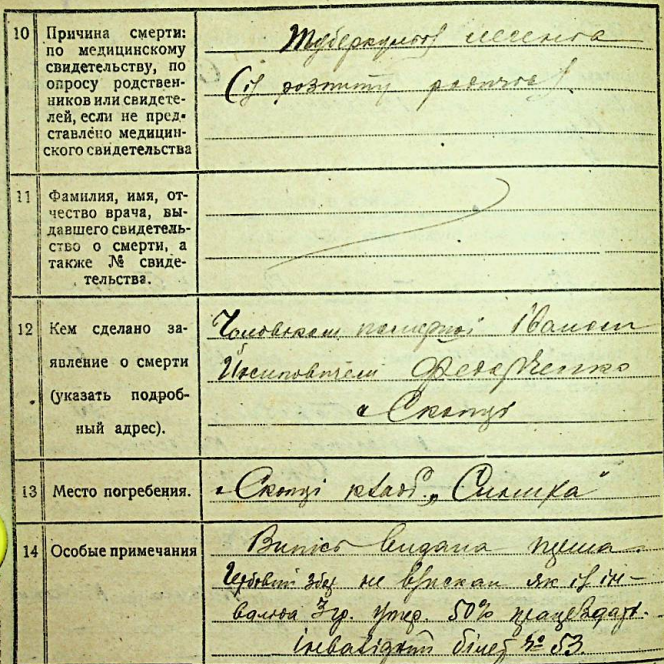 10
Причина смерти:
по медицинскому
свидетельству, по
опросу родствен-
ников или свидете-
лей, если не пред-
ставлено медицин-
ского свидетельства
Туберкульоз
(із розпиту
11
Фамилия, имя, от-
чество врача, вы-
давшего свидетель-
ство о смерти, а
также № свиде-
тельства.
12
Кем сделано за-
явление о смерти
(указать подроб-
ный адрес).
Чоловіком померлої Іваном
Йосиповичем Федорченко
с Скопці
13
Место погребения.
с Скопці кладб.
14
Особые примечания
Випись видана перша
Гербовий збір не взискан як із ін-
валіда 3 гр. утер. 50% працездатн.
інвалідний білет № 53